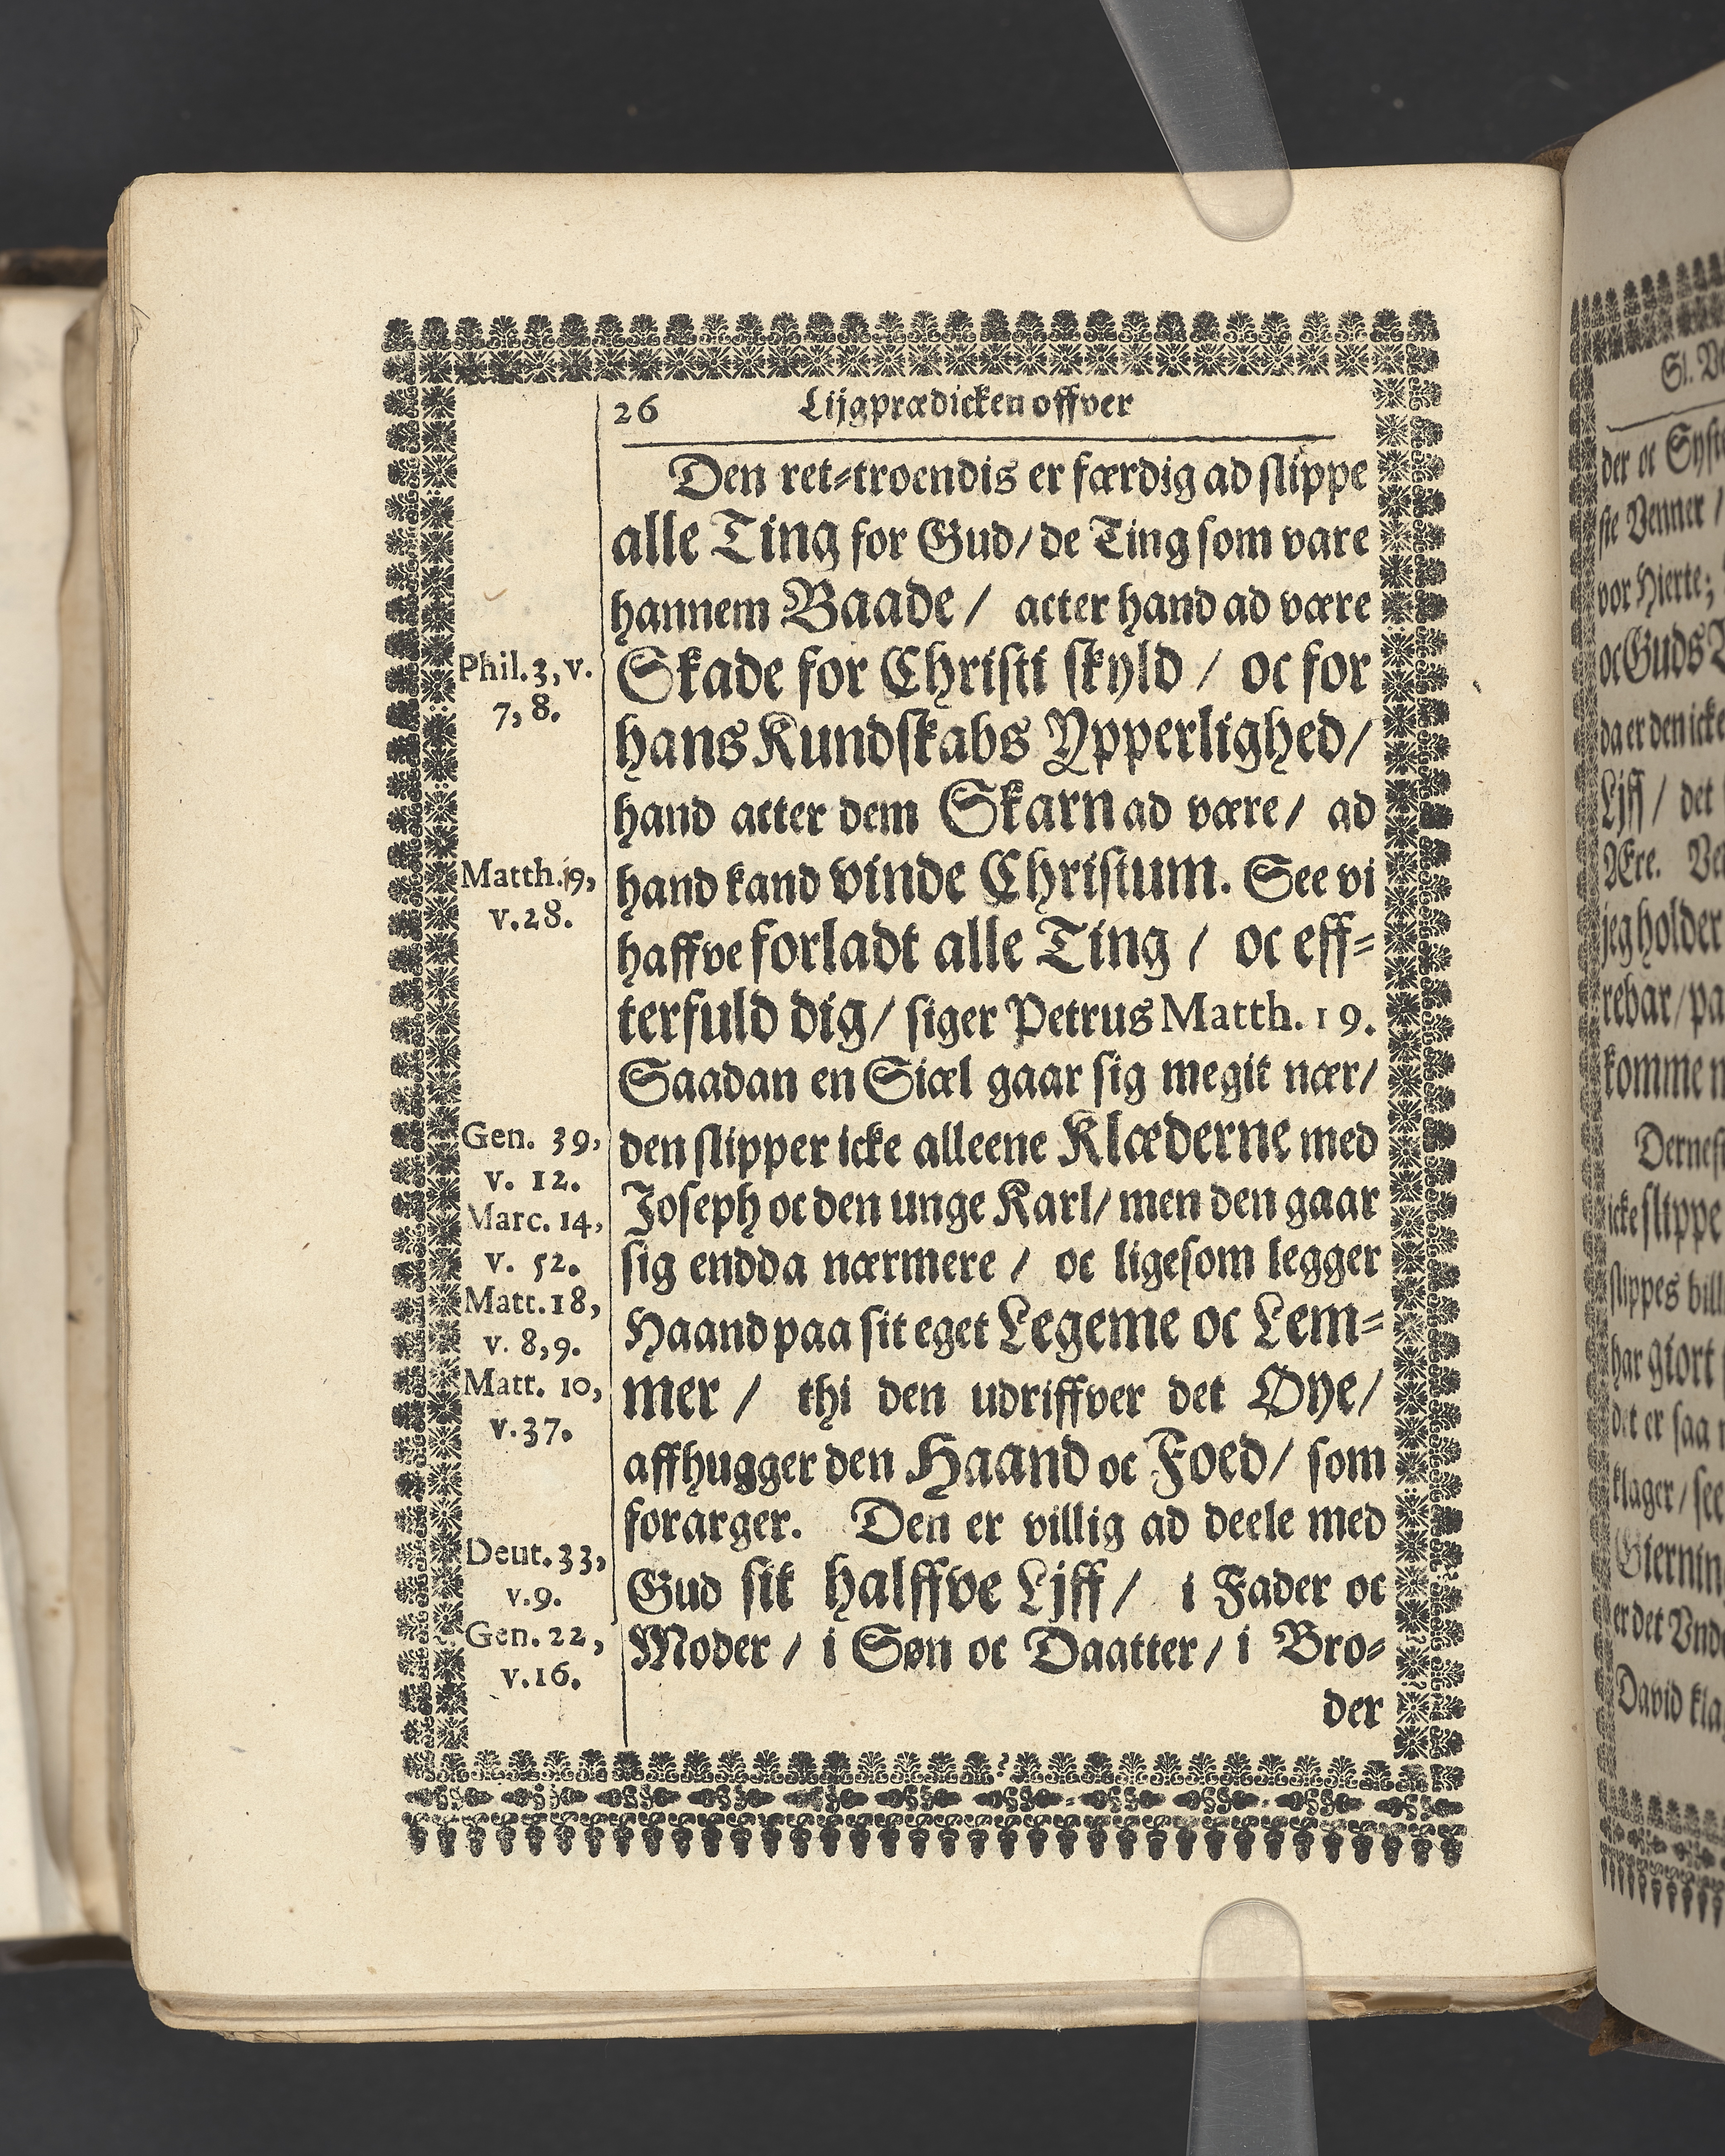 26 Lijgprædicken offver
Den ret-troendis er færdig ad slippe
alle Ting for Gud/ de Ting som vare
hannem Baade / acter hand ad være
Phil. 3, v.
7, 8.
Skade for Christi skyld / oc for
hans Kundskabs Ypperlighed/
hand acter dem Skarn ad være/ ad
Matth. 19,
v. 28.
hand kand vinde Christum. See vi
haffve forladt alle Ting / oc eff-
terfuld dig/ siger Petrus Matth. 19.
Saadan en Siæl gaar sig megit nær/
Gen. 39,
v. 12.
den slipper icke alleene Klæderne med
Marc. 14,
v. 52.
Joseph oc den unge Karl/ men den gaar
sig endda nærmere / oc ligesom legger
Matt. 18,
v. 8, 9.
Haand paa sit eget Legeme oc Lem-
Matt. 10,
v. 37.
mer / thi den udriffver det Øye/
affhugger den Haand oc Foed/ som
forarger. Den er villig ad deele med
Deut. 33,
v. 9.
Gud sit halffve Ljff / i Fader oc
Gen. 22,
v. 16.
Moder / i Søn oc Daatter/ i Bro-
der
Sl.
der oc
sie Venner /
vor Hierte;
oc Guds
da er den icke
Ljff / det
Ære.
jeg holder
komme
icke slippe
slippes
har giort
det er saa
klager / see
er det
David